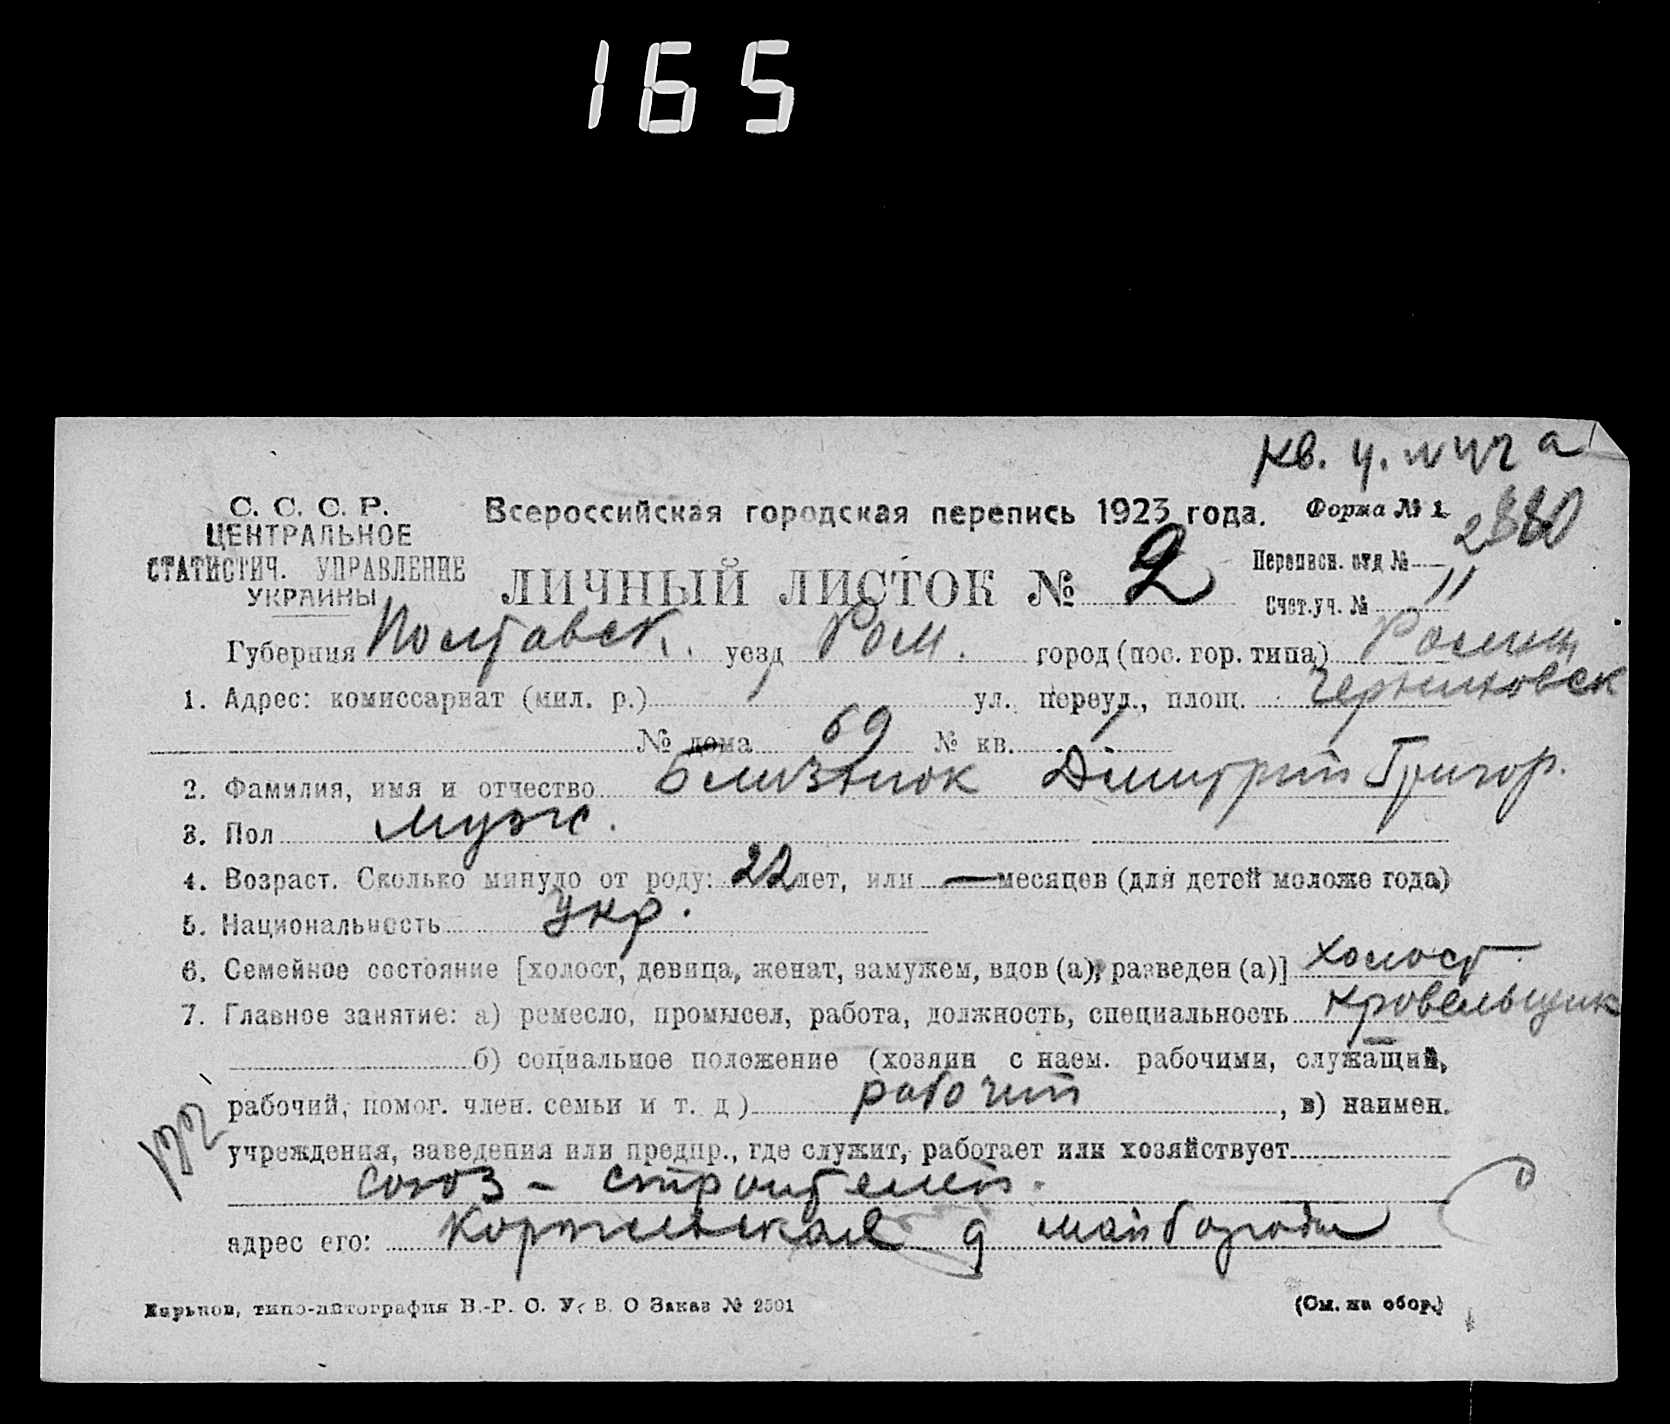 165
Кв. ч.
С. С. С. Р.
ЦЕНТРАЛЬНОЕ
СТАТИСТИЧ. УПРАВЛЕНИЕ
УКРАИНЫ
Всероссийская городская перепись 1923 года.
Форма № 1
ЛИЧНЫЙ ЛИСТОК № 2
Переписн. отд №
Счет.уч. № 11
Губерния Полтавск. уезд Ром. город (пос. гор. типа) Ромны
1. Адрес: комиссариат (мил. р.) ул. переул., площ.
№ дома 69 № кв.
2. Фамилия, имя и отчество Близнюк Дмитрий Григор.
3. Пол муж.
4. Возраст. Сколько минуло от роду: 22 лет, или — месяцев (для детей моложе года)
5. Национальность Укр.
6. Семейное состояние [холост, девица, женат, замужем, вдов (а), разведен (а)] холост
7. Главное занятие: а) ремесло, промысел, работа, должность, специальность кровельщик
б) социальное положение (хозяин с наем. рабочими, служащий,
рабочий, помог. член. семьи и т. д) рабочий, в) наимен.
учреждения, заведения или предпр., где служит, работает или хозяйствует
союз - строителей.
адрес его:
Харьков, типо-литография В.-Р. О. У. В. О Заказ № 2501
(См. на обор.)